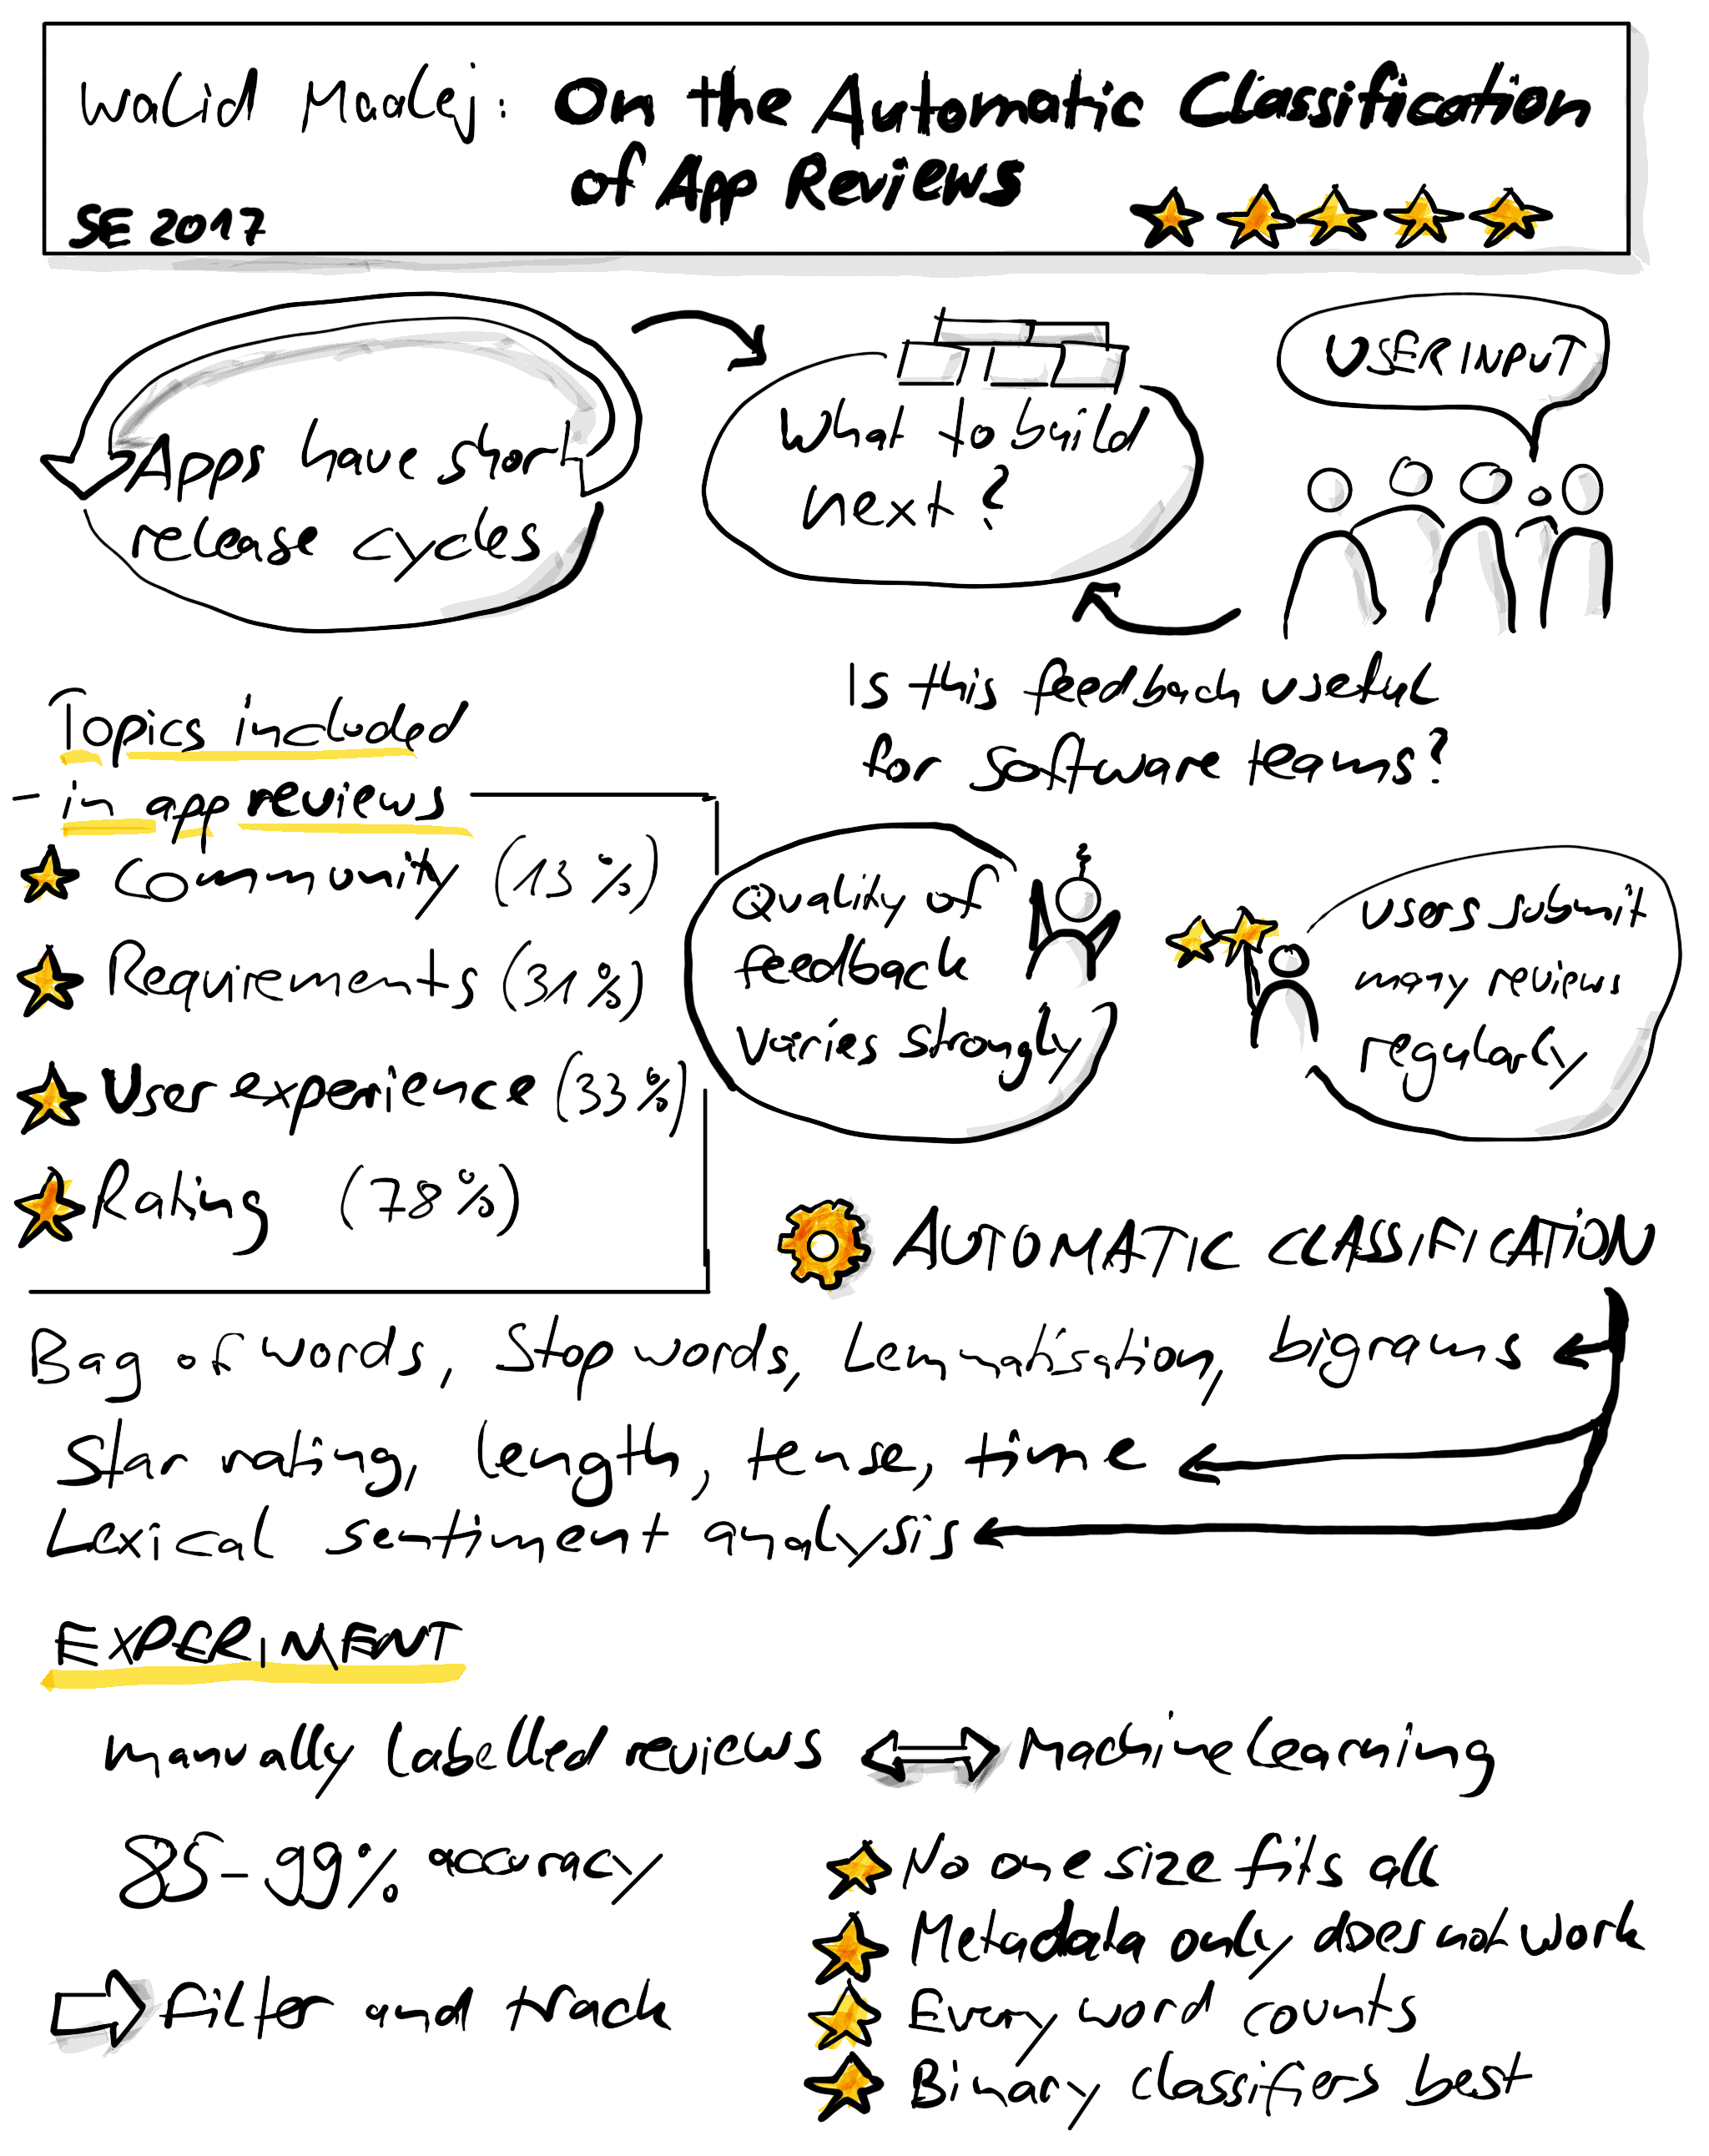 Walid Maalej: On the Automatic Classification
of App Reviews
SE 2017
Apps have short
release cycles
What to build
next?
USER INPUT
Is this feedback useful
for software teams?
Topics included
in app reviews
Community (13%)
Requirements (31%)
User experience (33%)
Rating (78%)
Quality of
feedback
varies strongly
users submit
many reviews
regularly
AUTOMATIC CLASSIFICATION
Bag of words, Stop words, Lemmatisation, bigrams
Star rating, length, tense, time
Lexical sentiment analysis
EXPERIMENT
manually labelled reviews
Machine Learning
85-99% accuracy
filter and track
No one size fits all
Metadata only does not work
Every word counts
Binary classifiers best